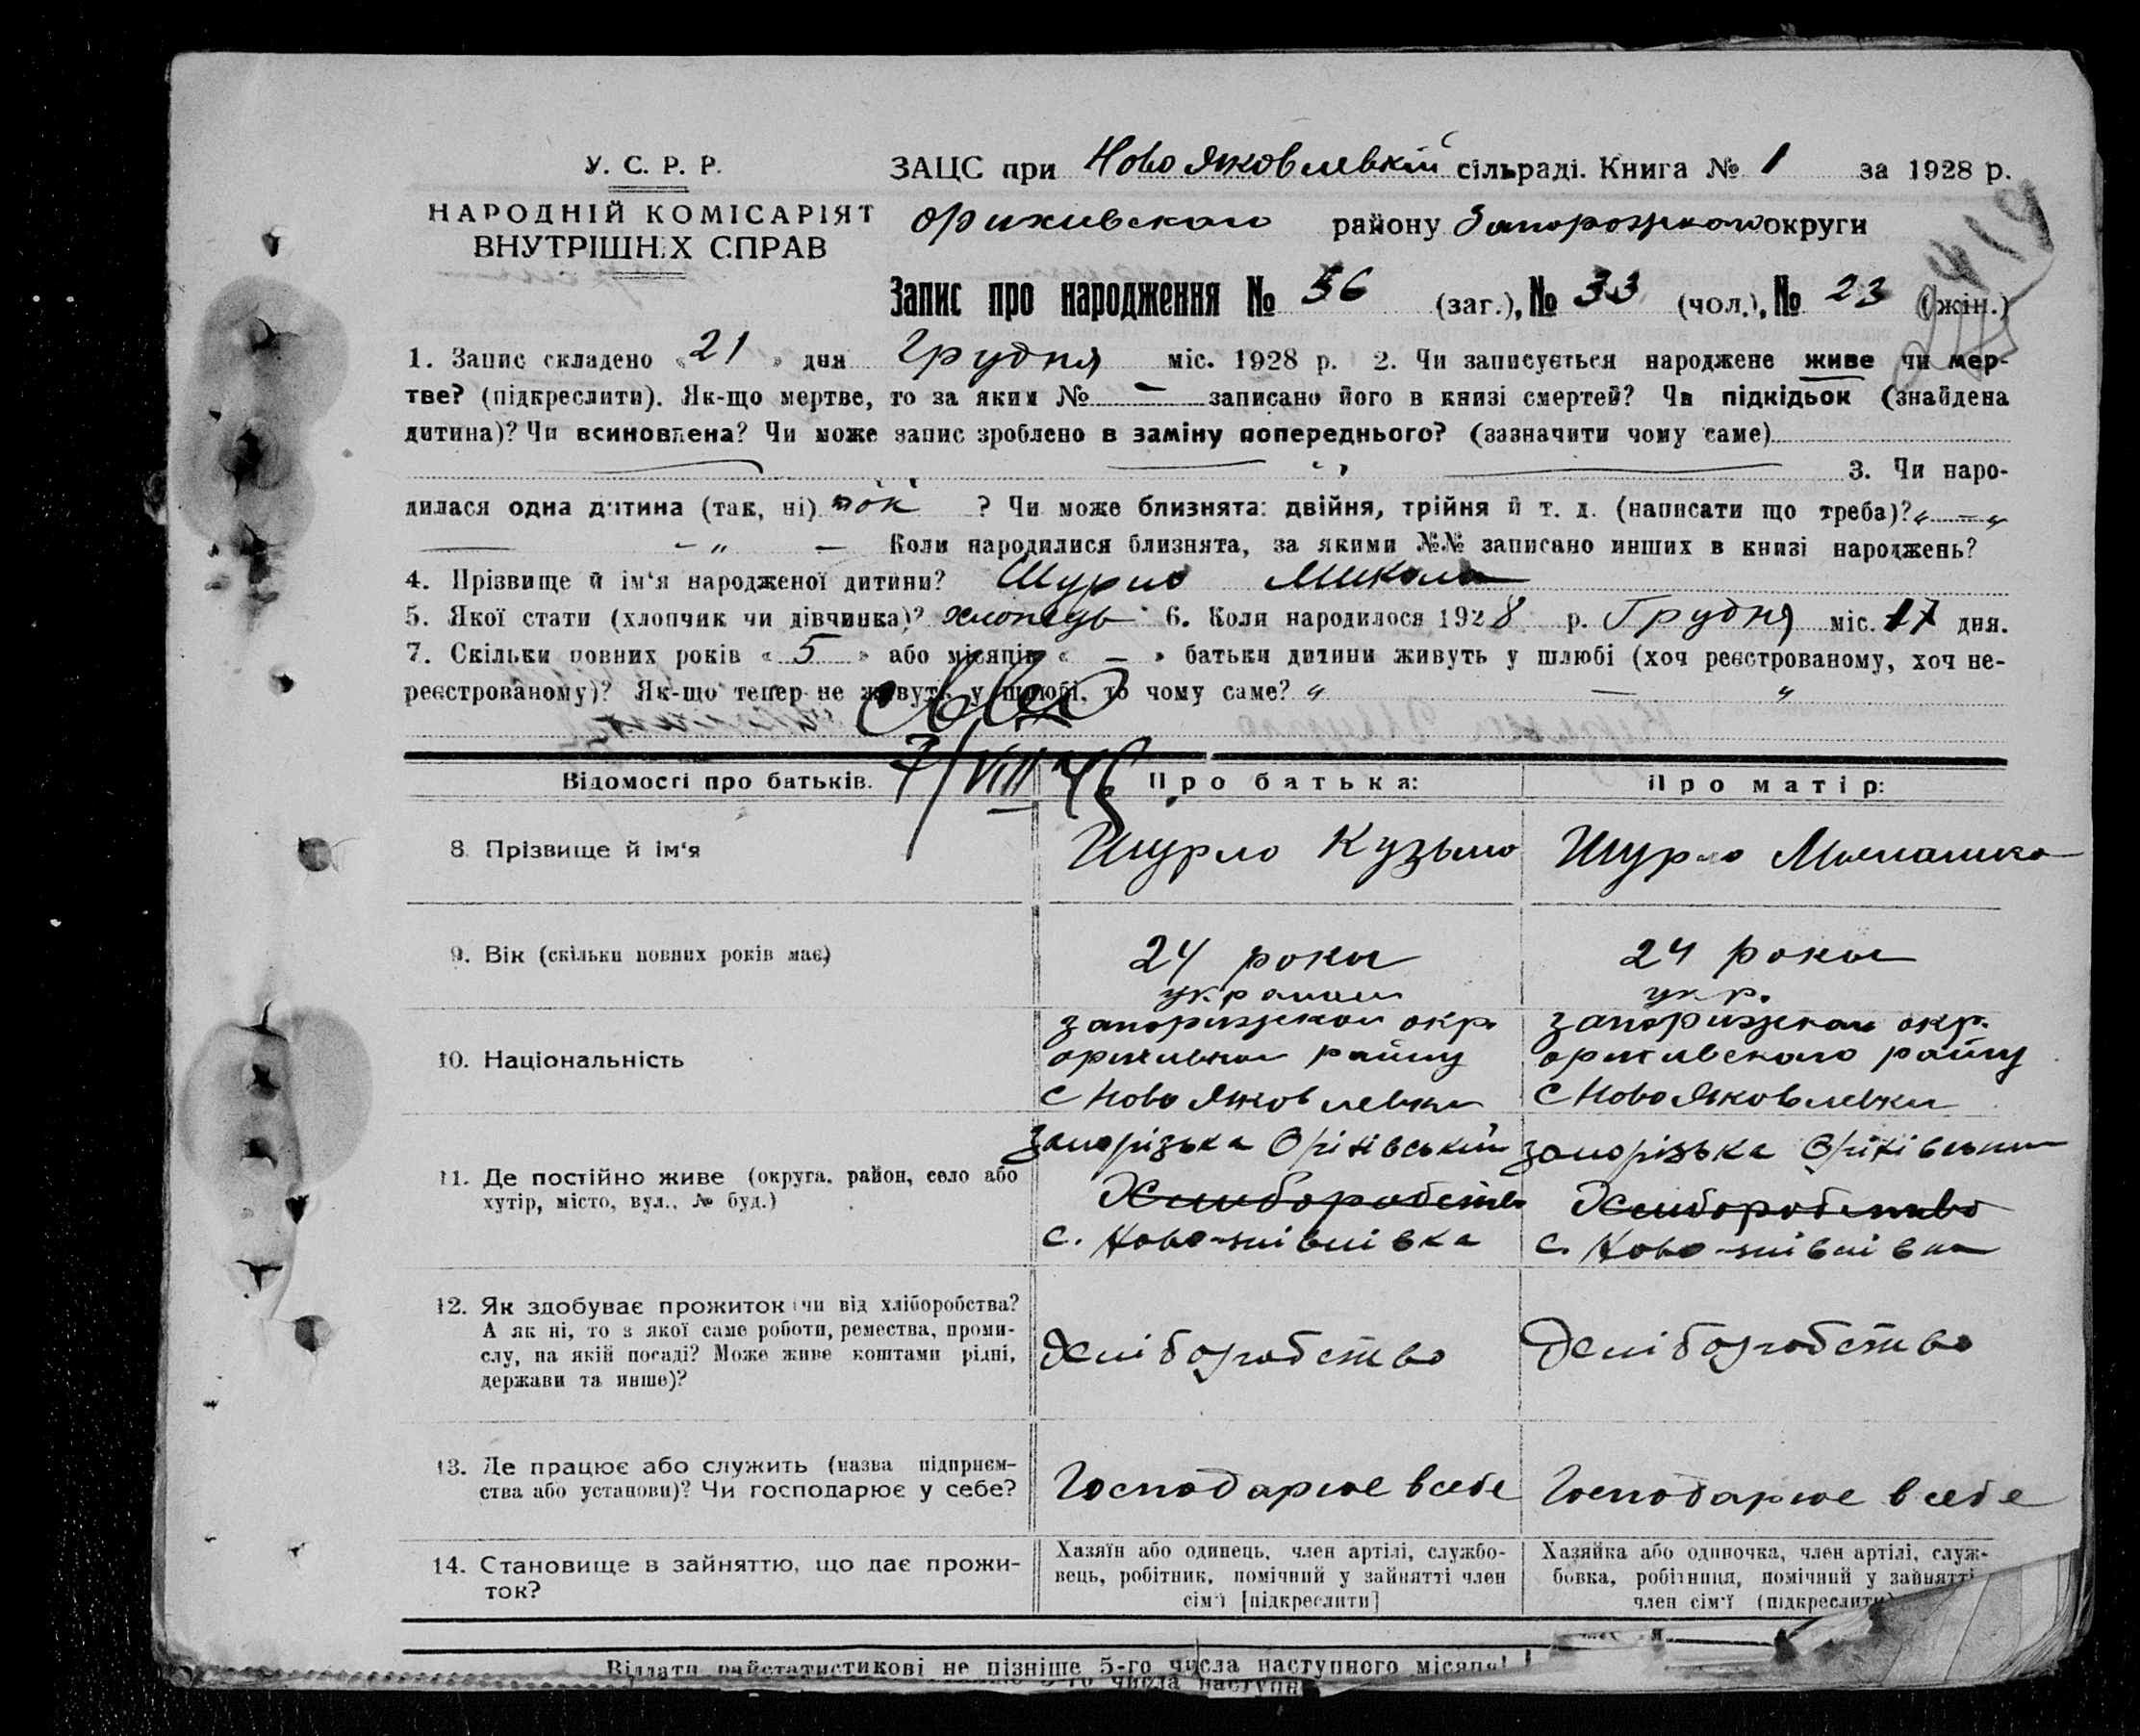 У. С. Р. Р.
НАРОДНІЙ КОМІСАРІЯТ
ВНУТРІШНІХ СПРАВ
ЗАЦС при Ново Яковлевкій сільраді. Книга № 1 за 1928 р.
Орихивскаго району Запорожскаго округи
Запис про народження № 56 (заг.), № 33 (чол.), № 23 (жін.)
1. Запис складено «21» дня Грудня міс. 1928 р. 2. Чи записується народжене живе чи мер-
тве? (підкреслити). Як-що мертве, то за яким № — записано його в книзі смертей? Чи підкідьок (знайдена
дитина)? Чи всиновлена? Чи може запис зроблено в заміну попереднього? (зазначити чому саме)
3. Чи наро-
дилася одна дитина (так, ні) так ? Чи може близнята: двійня, трійня й т. д. (написати що треба)? „ — „
— „ — Коли народилися близнята, за якими №№ записано инших в книзі народжень?
4. Прізвище й ім‘я народженої дитини? Шурло Микола
5. Якої стати (хлопчик чи дівчинка)? хлопець 6. Коли народилося 1928 р. Грудня міс. 17 дня.
7. Скільки повних років «5» або місяців « — » батьки дитини живуть у шлюбі (хоч реєстрованому, хоч не-
реєстрованому)? Як-що тепер не живуть у шлюбі, то чому саме? „ — „
7/VIII 46
Відомості про батьків. Про батька: Про матір:
8. Прізвище й ім‘я Шурло Кузьма Шурло Меланика
9. Вік (скільки повних років має) 24 роки 24 роки
украінец укр.
10. Національність
запорижскои окр. запорижскои окр.
орихивскои райну орихивскаго райну
с Ново Яковлевки с Ново Яковлевки
11. Де постійно живе (округа, район, село або
хутір, місто, вул., № буд.)
запорізька Оріхівський запорізька Оріхівський
Хлиборобство Хлиборобство
с. Ново-яківлівка с. Ново-яківлівка
12. Як здобуває прожиток (чи від хліборобства?
А як ні, то з якої саме роботи, ремества, проми-
слу, на якій посаді? Може живе коштами рідні,
держави та инше)?
Хліборобство Хліборобство
13. Де працює або служить (назва підприєм-
ства або установи)? Чи господарює у себе?
Господарює всебе Господарює всебе
14. Становище в зайняттю, що дає прожи-
ток?
Хазяїн або одинець, член артілі, службо-
вець, робітник, помічний у зайнятті член
сім‘ї [підкреслити]
Хазяйка або одиночка, член артілі, служ-
бовка, робітниця, помічний у зайнятті
член сім‘ї (підкреслити)
Віддати райстатистикові не пізніше 5-го числа наступного місяця!
5-го числа наступн